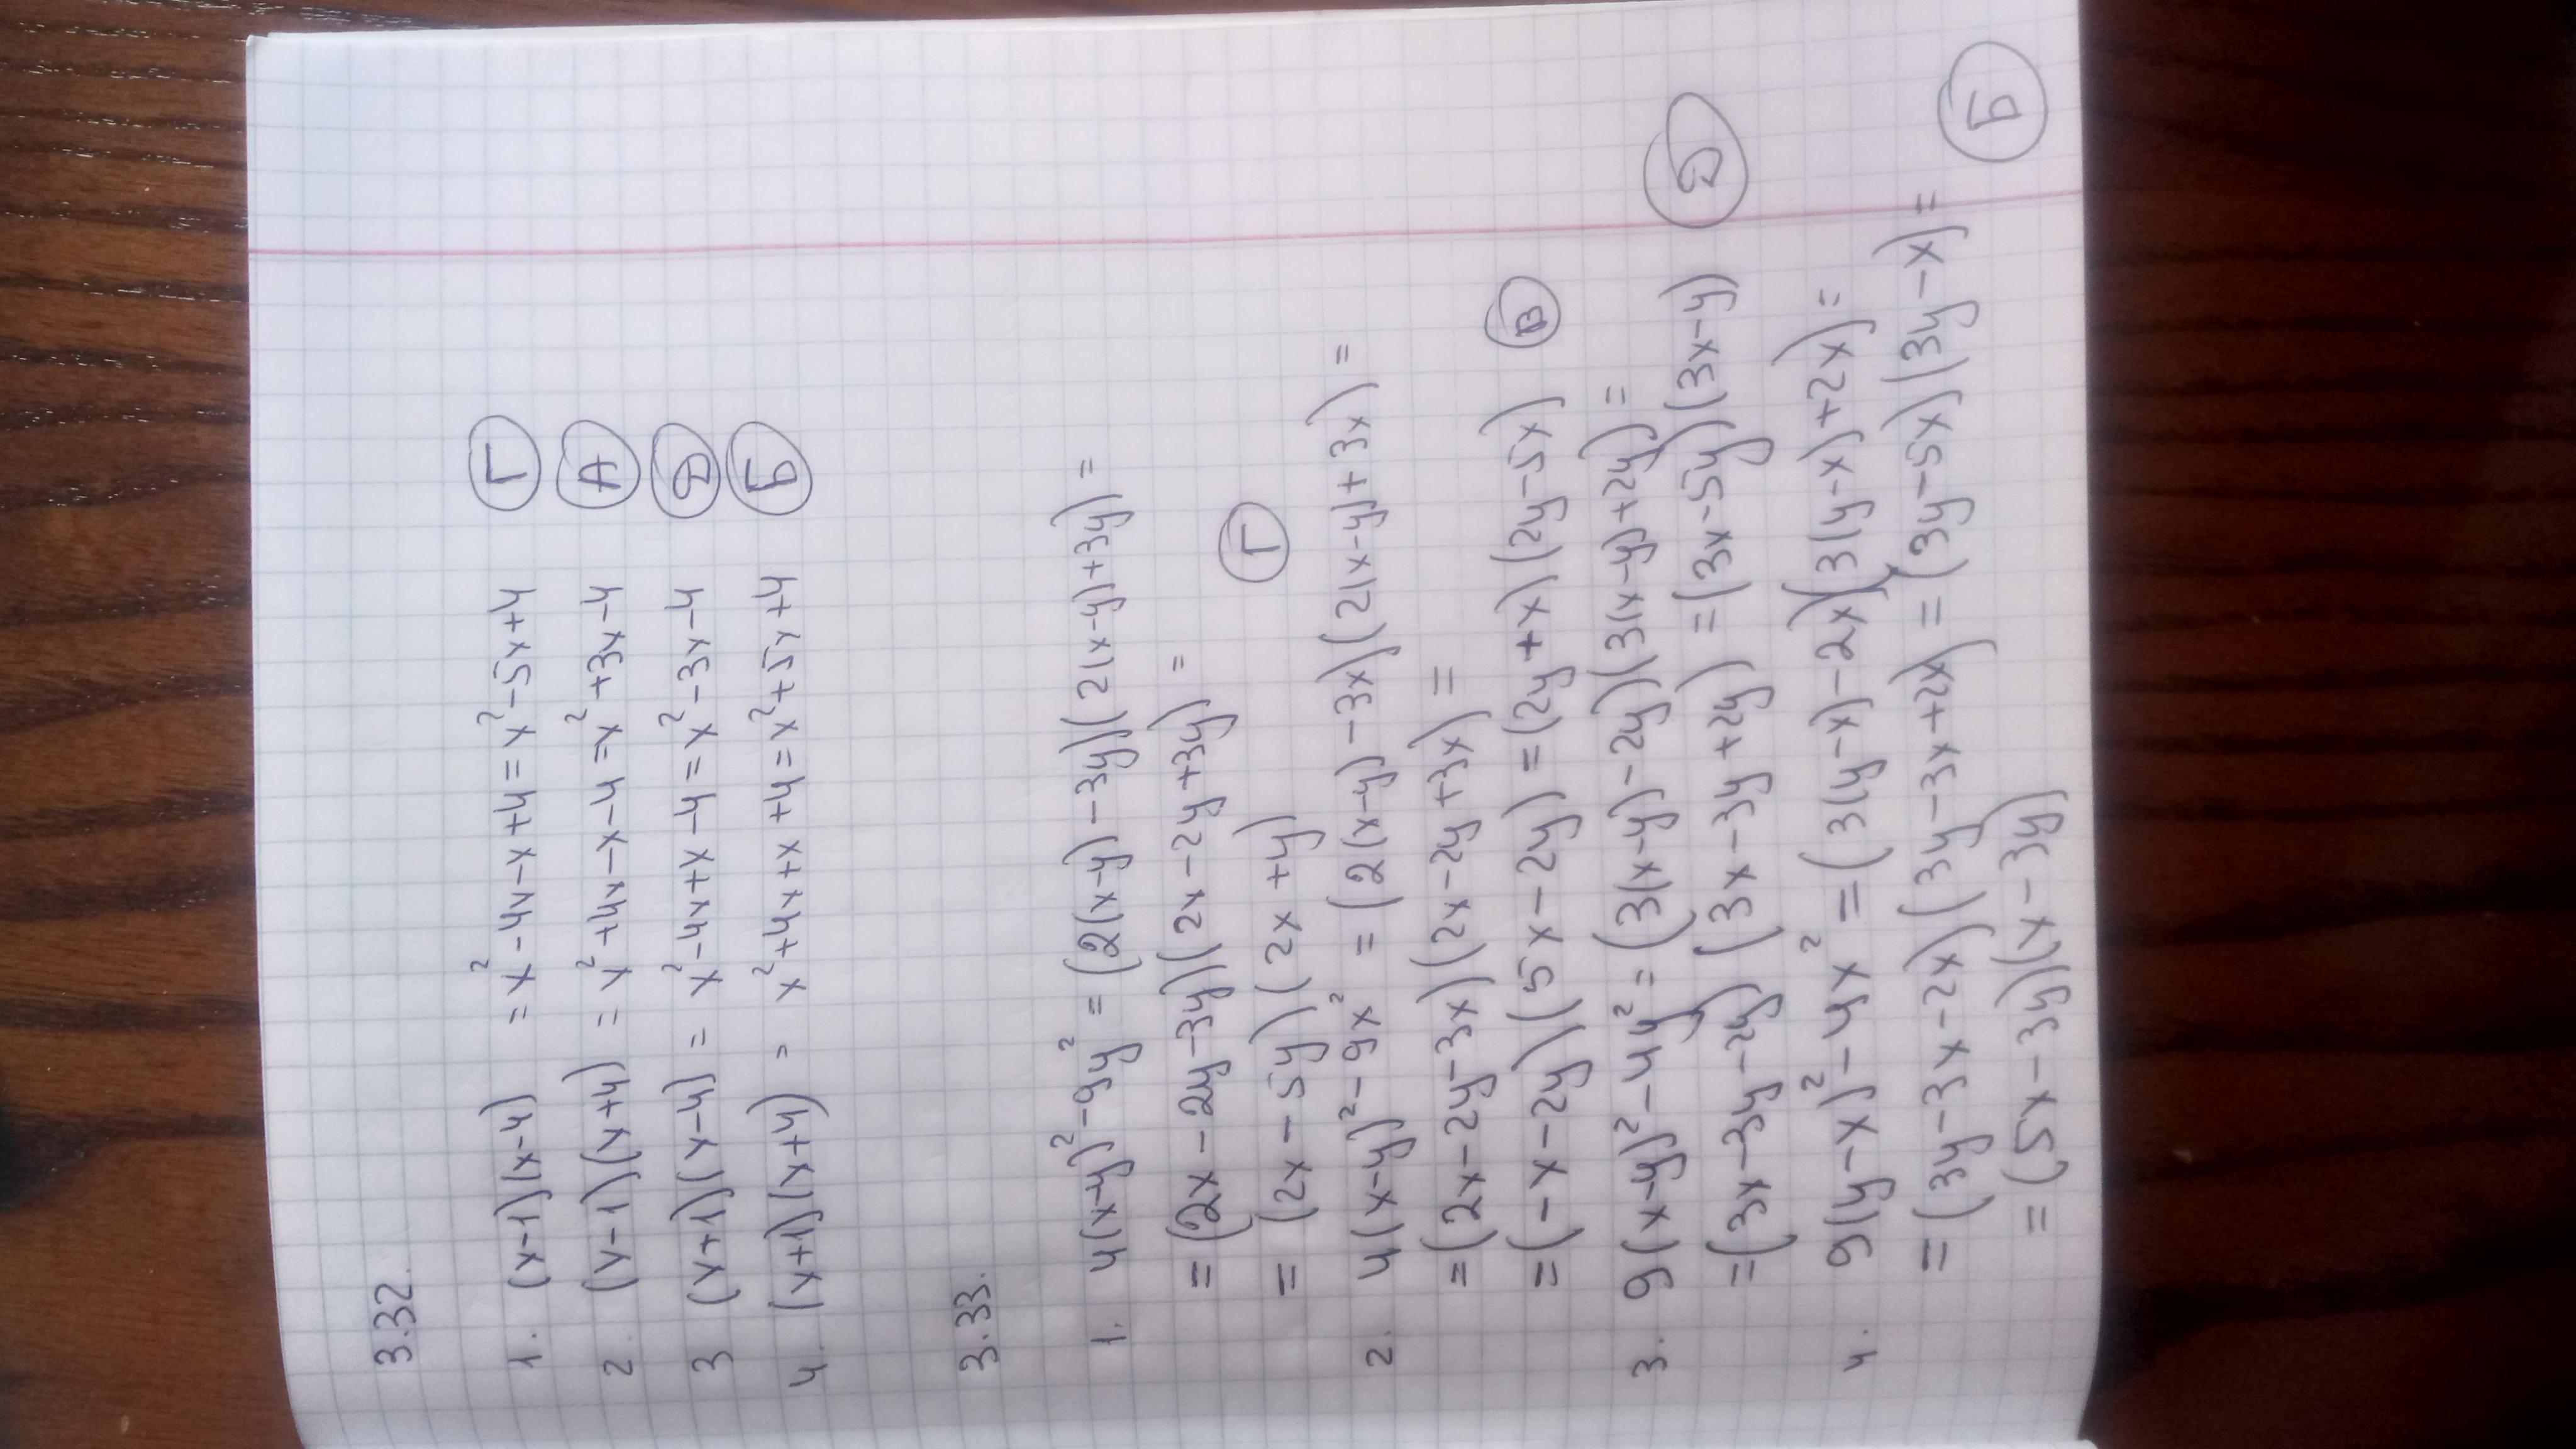 3.32.
1. (x-1)(x-4) = x²-4x-x+4 = x²-5x+4 Г
2. (x-1)(x+4) = x²+4x-x-4 = x²+3x-4 А
3 (x+1)(x-4) = x²-4x+x-4 = x²-3x-4 Д
4. (x+1)(x+4) = x²+4x+x+4 = x²+5x+4 Б
3.33.
1. 4(x-y)²-9y² = (2(x-y)-3y)(2(x-y)+3y) =
= (2x-2y-3y)(2x-2y+3y) =
= (2x-5y)(2x+y) Г
2. 4(x-y)²-9x² = (2(x-y)-3x)(2(x-y)+3x) =
= (2x-2y-3x)(2x-2y+3x) =
= (-x-2y)(5x-2y) = (2y+x)(2y-5x) В
3. 9(x-y)²-4y² = (3(x-y)-2y)(3(x-y)+2y) =
= (3x-3y-2y)(3x-3y+2y) = (3x-5y)(3x-y) Д
4. 9(y-x)²-4x² = (3(y-x)-2x)(3(y-x)+2x) =
= (3y-3x-2x)(3y-3x+2x) = (3y-5x)(3y-x) =
= (5x-3y)(x-3y) Б